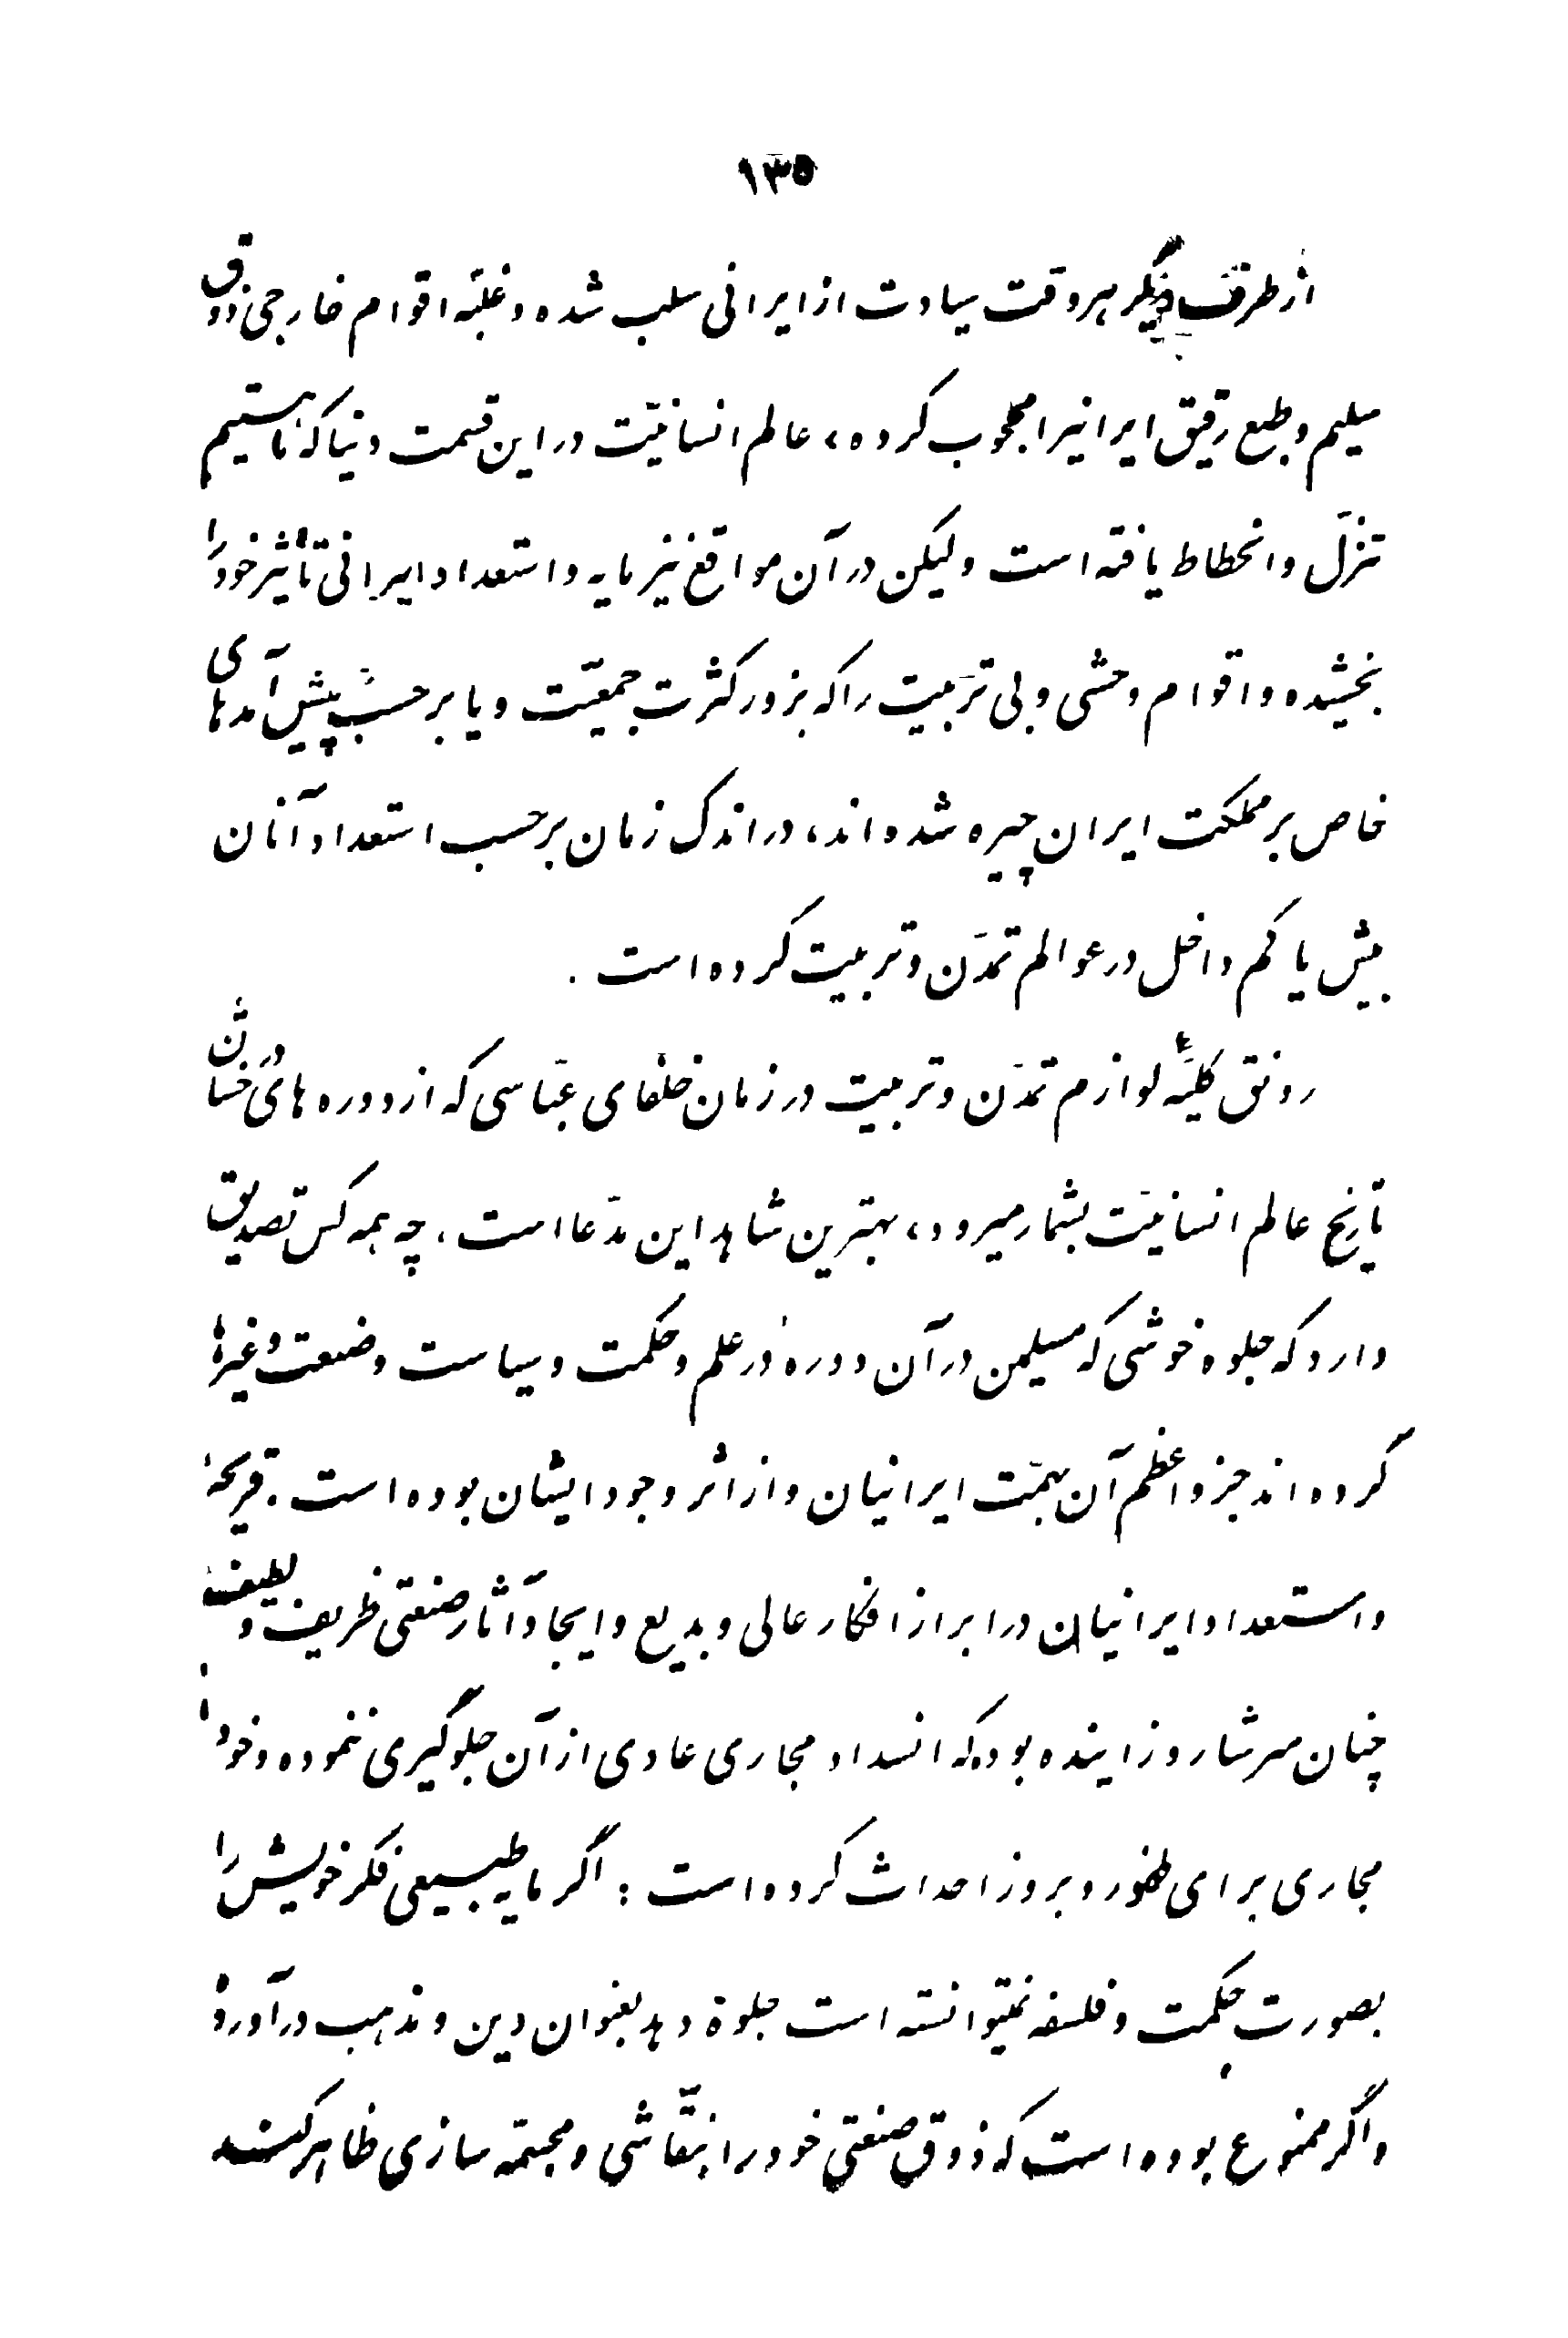 ۱۳۵
از طرف دیگر هر وقت سیادت از ایرانی سلب شده و غلبهٔ اقوام خارجی ذوق
سلیم و طبع رقیق ایرانیرا محجوب کرده، عالم انسانیّت در این قسمت دنیا که ما هستیم
تنزّل و انحطاط یافته است ولیکن در آن مواقع نیز مایه و استعداد ایرانی تأثیر خود را
بخشیده و اقوام وحشی و بی تربیت را که بزور کثرت جمعیّت و یا بر حسب پیش آمدهای
خاص بر مملکت ایران چیره شده‌اند، در اندک زمان بر حسب استعداد آنان
بیش یا کم داخل در عوالم تمدّن و تربیت کرده است .
رونق کلیّهٔ لوازم تمدّن و تربیت در زمان خلفای عبّاسی که از دوره های درخشان
تاریخ عالم انسانیّت بشمار میرود، بهترین شاهد این مدّعا است، چه همه کس تصدیق
دارد که جلوه خوشی که مسلمین در آن دوره در علم و حکمت و سیاست و صنعت و غیرها
کرده اند جزو اعظم آن بهمّت ایرانیان و از اثر وجود ایشان بوده است . قریحهٔ
و استعداد ایرانیان در ابراز افکار عالی و بدیع و ایجاد آثار صنعتی ظریف و لطیف
چنان سرشار و زاینده بوده که انسداد مجاری عادی از آن جلوگیری ننموده و خود
مجاری برای ظهور و بروز احداث کرده است : اگر مایه طبیعی فکر خویش را
بصورت حکمت و فلسفه نمیتوانسته است جلوه دهد بعنوان دین و مذهب در آورده
و اگر ممنوع بوده است که ذوق صنعتی خود را بنقّاشی و مجسّمه سازی ظاهر کند